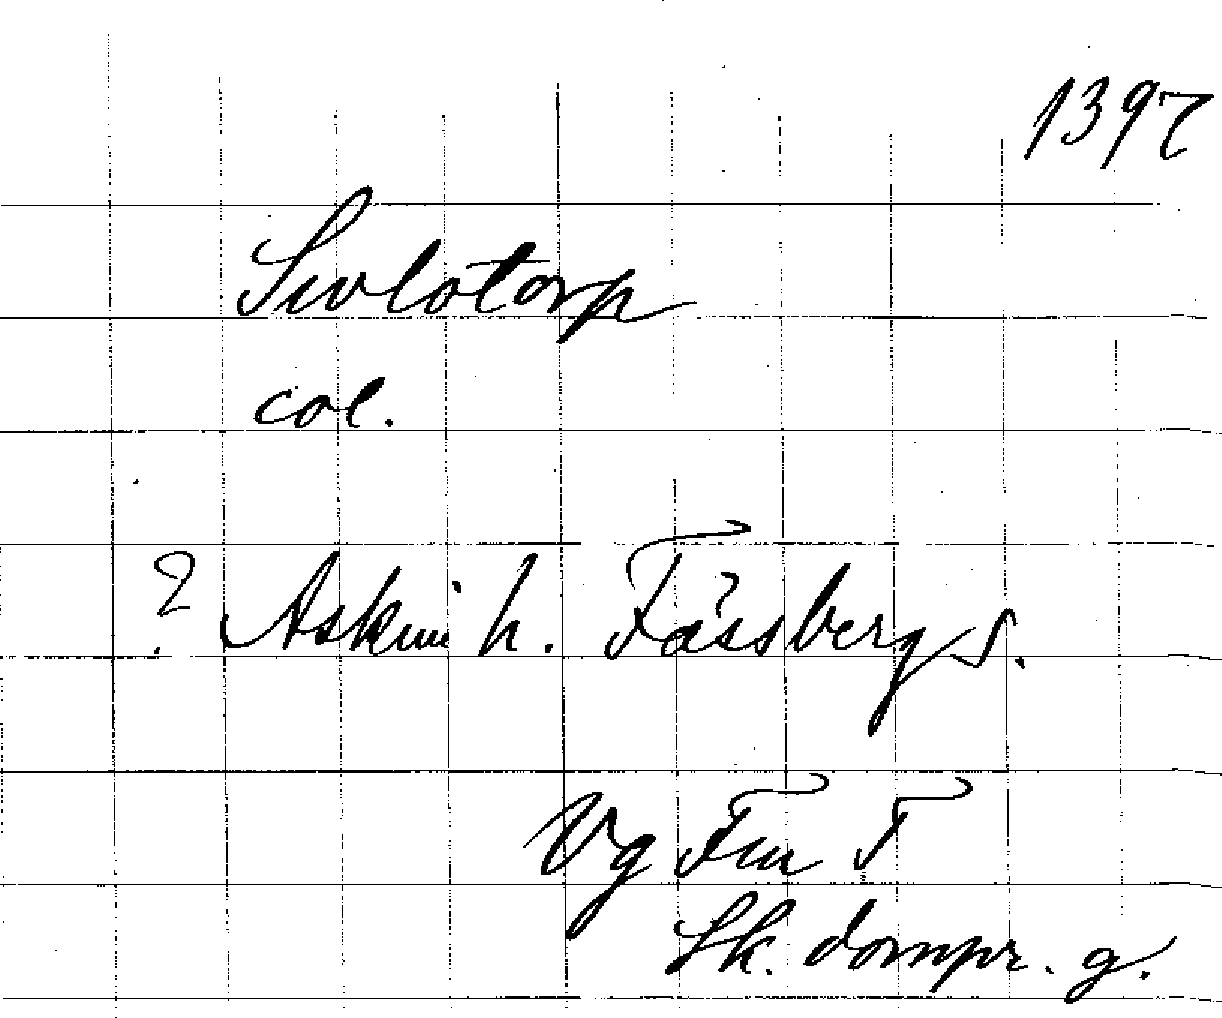 1397
Swlotorp
col.
? Askim h. Fässbergs s.
Vg Fm F
Sk. dompr. g.